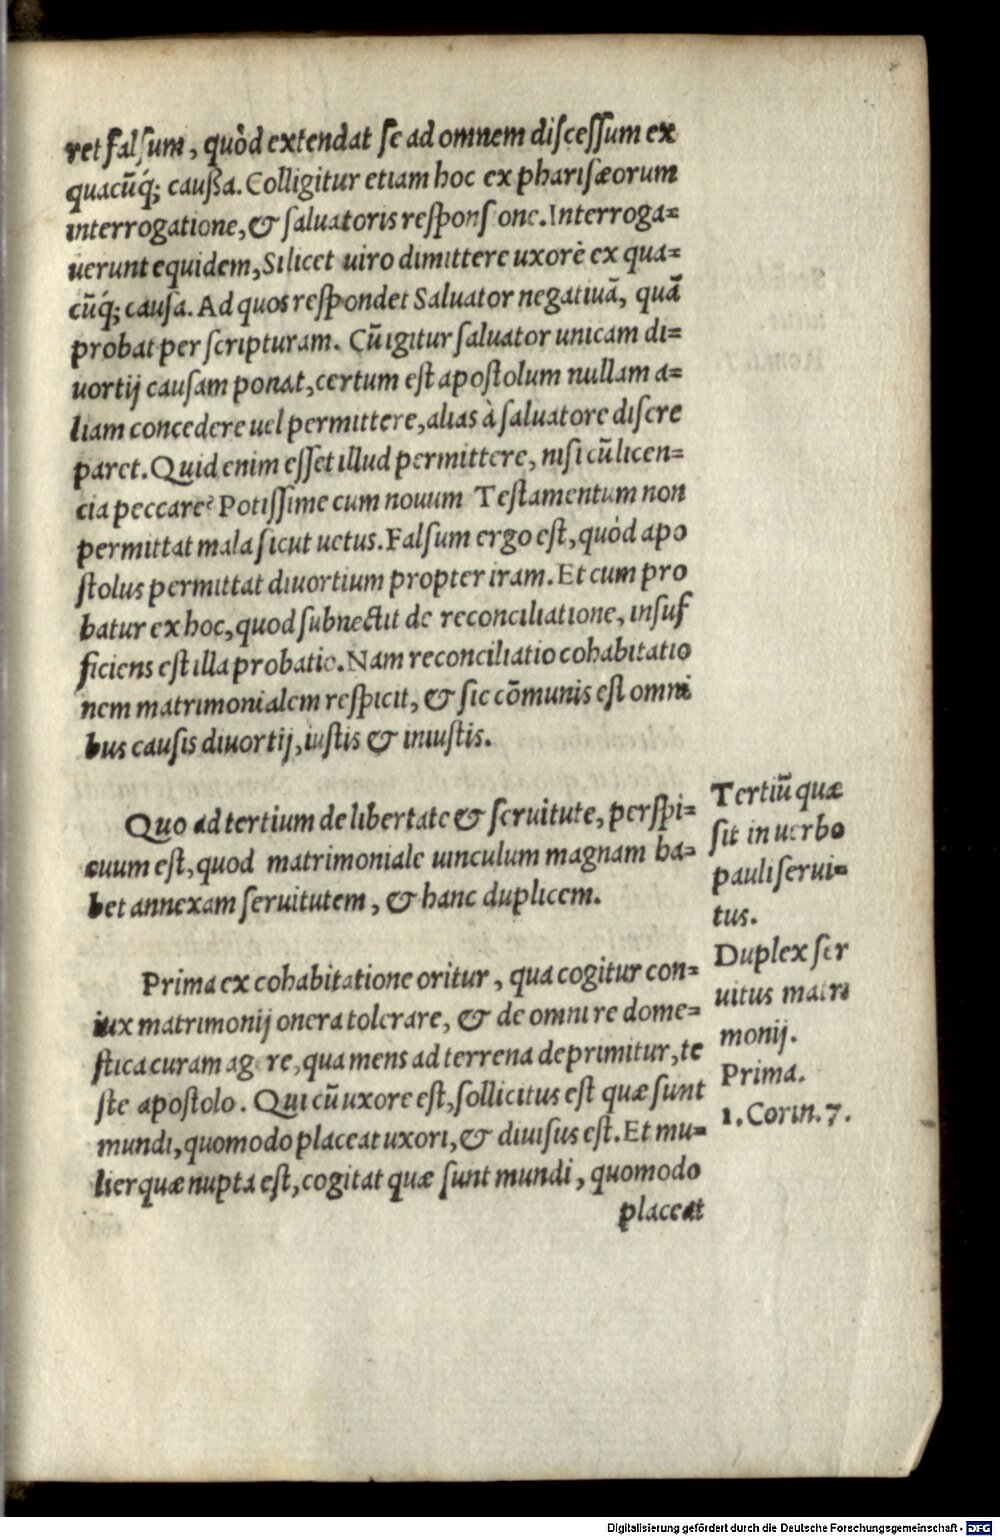 ret falsum, quòd extendat se ad omnem discessum ex
quacũq́; caußa. Colligitur etiam hoc ex pharisæorum
interrogatione, & saluatoris respons one. Interroga=
uerunt equidem, Si licet uiro dimittere uxorẽ ex qua=
cũq́; causa. Ad quos respondet Saluator negatiuã, quã
probat per scripturam. Cũ igitur saluator unicam di=
uortij causam ponat, certum est apostolum nullam a=
liam concedere uel permittere, alias à saluatore discre
paret. Quid enim esset illud permittere, nisi cũ licen=
cia peccare? Potissime cum nouum Testamentum non
permittat mala sicut uetus. Falsum ergo est, quòd apo
stolus permittat diuortium propter iram. Et cum pro
batur ex hoc, quod subnectit de reconciliatione, insuf
ficiens est illa probatio. Nam reconciliatio cohabitatio
nem matrimonialem respicit, & sic cõmunis est omni
bus causis diuortij, iustis & iniustis.
Quo ad tertium de libertate & seruitute, perspi=
cuum est, quod matrimoniale uinculum magnam ha=
bet annexam seruitutem, & hanc duplicem.
Tertiũ quæ
sit in uerbo
pauli serui=
tus.
Prima ex cohabitatione oritur, qua cogitur con=
iux matrimonij onera tolerare, & de omni re dome=
stica curam agere, qua mens ad terrena deprimitur, te
ste apostolo. Qui cũ uxore est, sollicitus est quæ sunt
mundi, quomodo placeat uxori, & diuisus est. Et mu=
lier quæ nupta est, cogitat quæ sunt mundi, quomodo
placeat
Duplex ser
uitus matri
monij.
Prima.
1. Corin. 7.
Digitalisierung gefördert durch die Deutsche Forschungsgemeinschaft - DFG